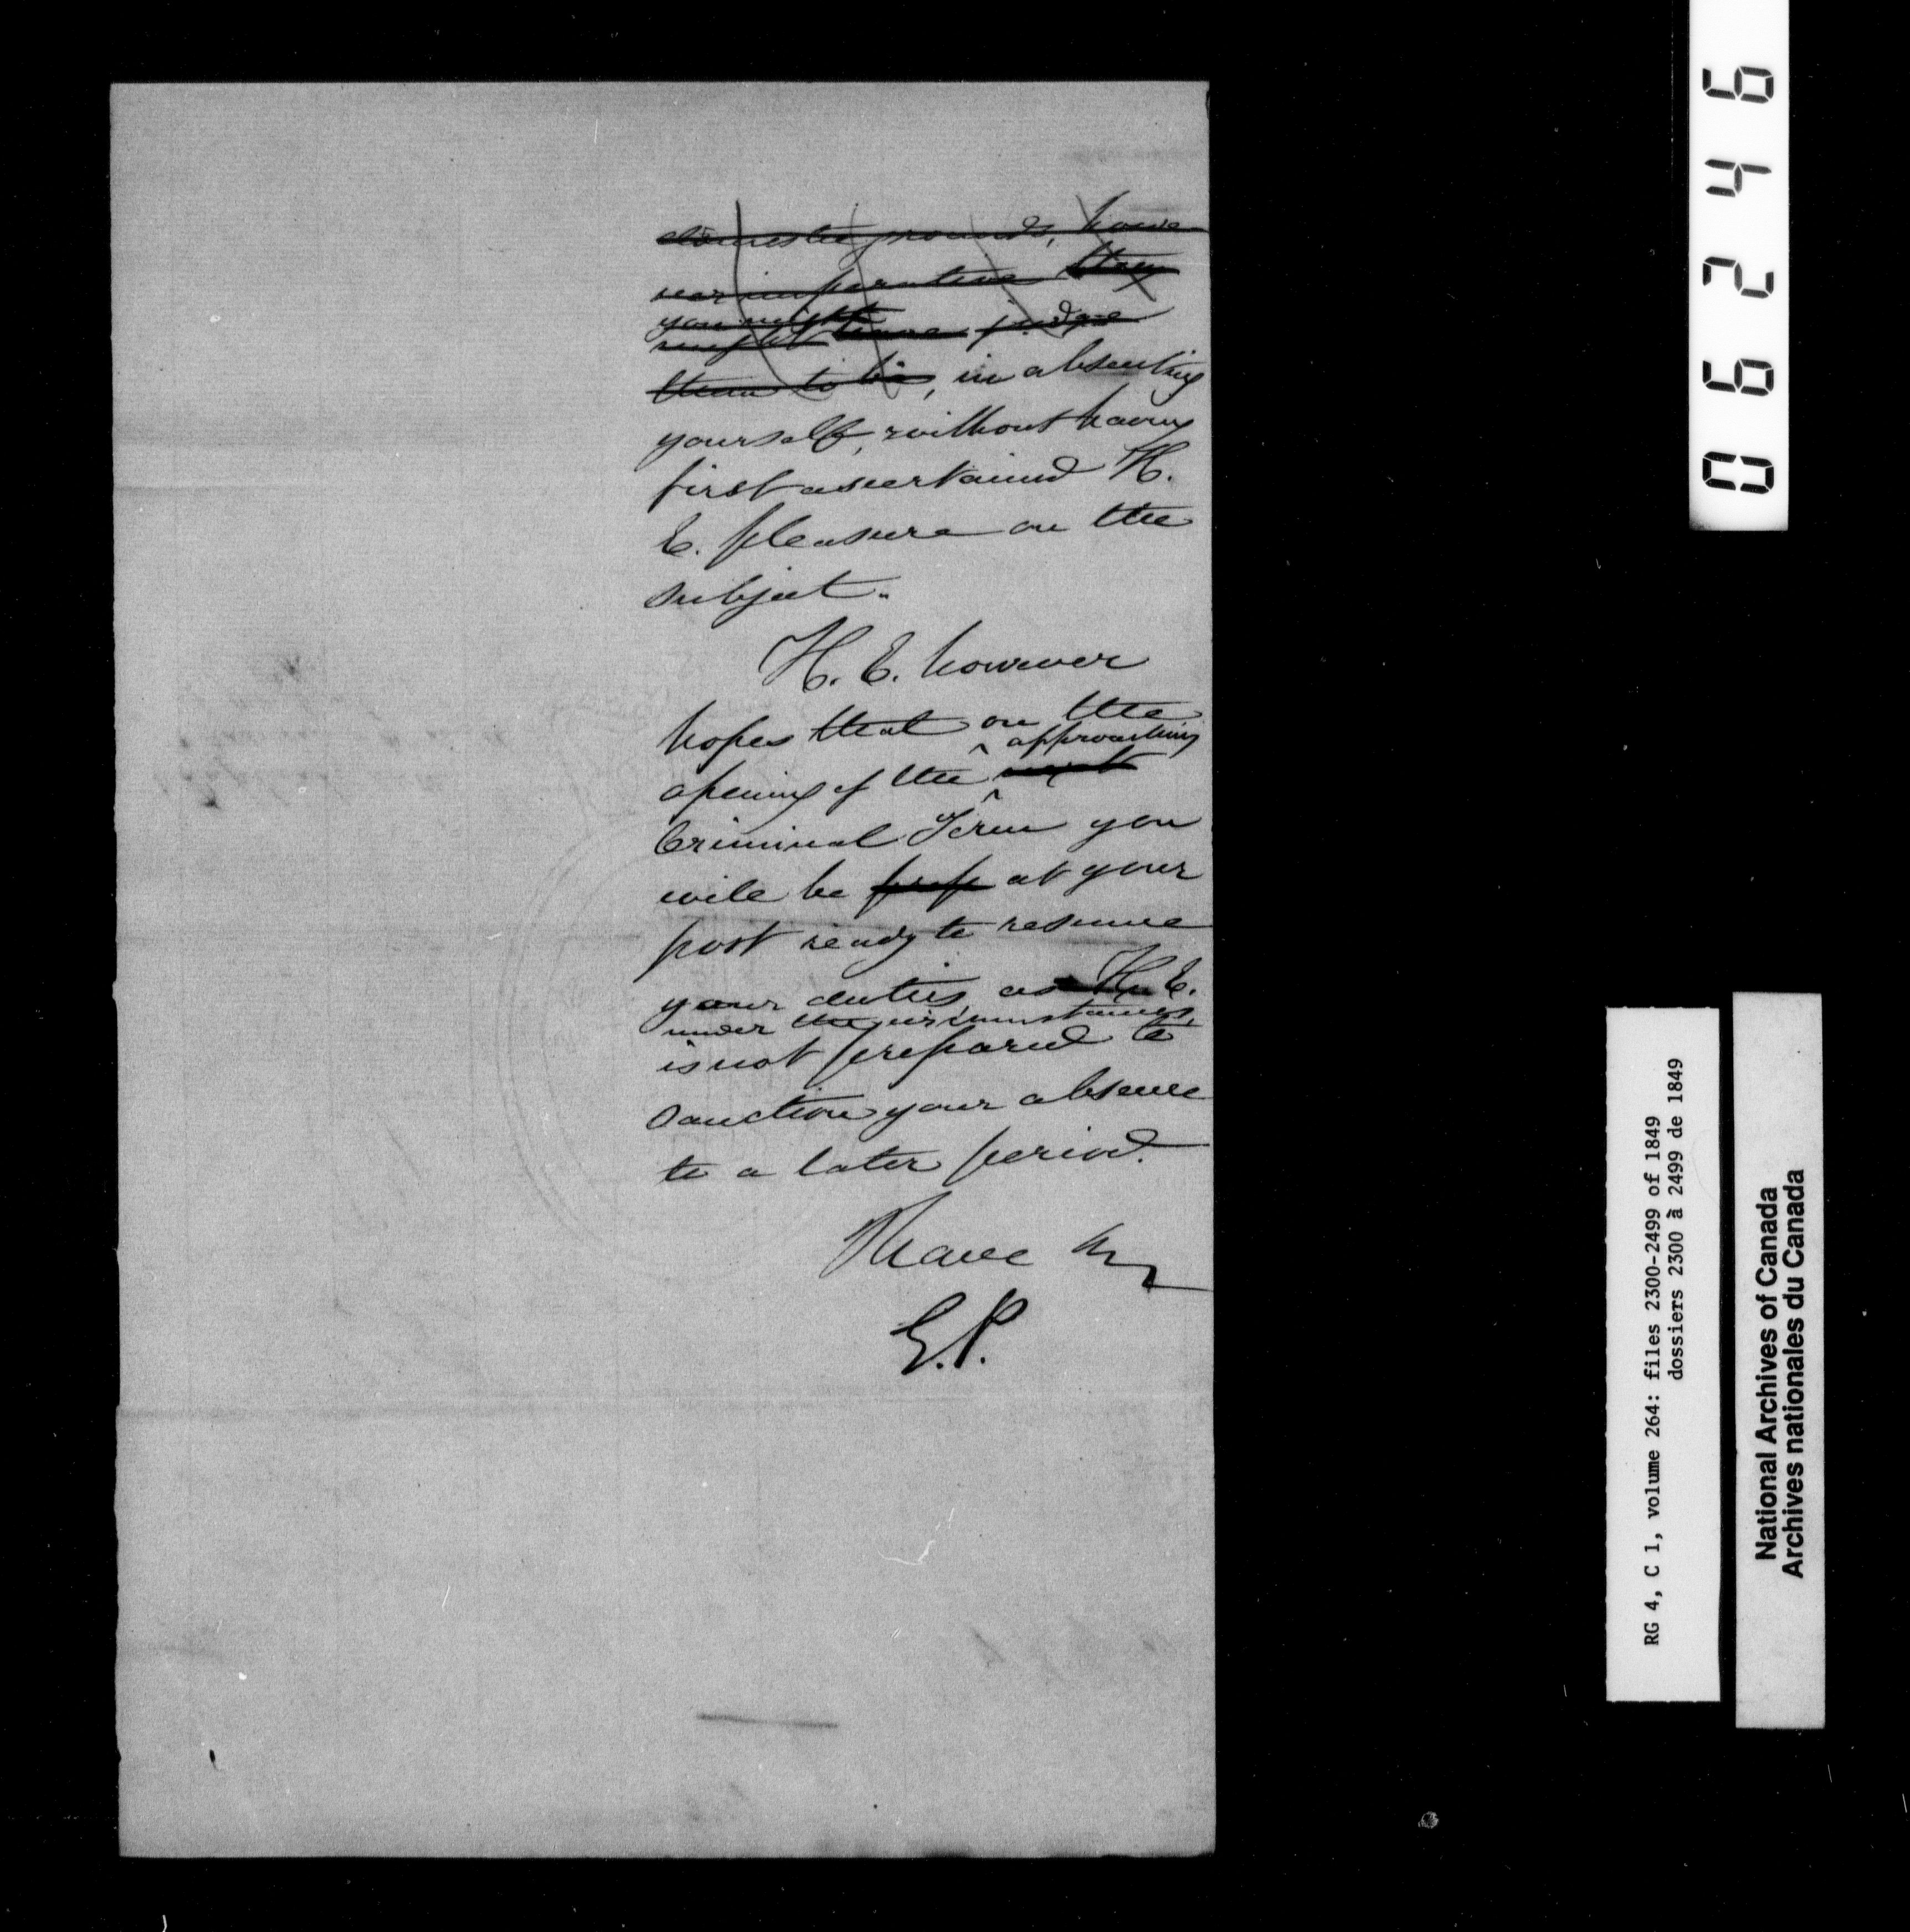 domestic grounds, howe-
ver imperative they
you might
might have judge
them to be, in absenting
yourself, without having
first ascertained H.
E. pleasure on the
subject.
H. E. however
hopes that on the
approaching
opening of the next
Criminal Term you
will be at your
post ready to resume
your duties, as H. E.
under the circumstances,
is not prepared to
sanction your absence
to a later period.
I have
E.P.
06246
RG 4, C 1, volume 264: files 2300-2499 of 1849
dossiers 2300 à 2499 de 1849
National Archives of Canada
Archives nationales du Canada